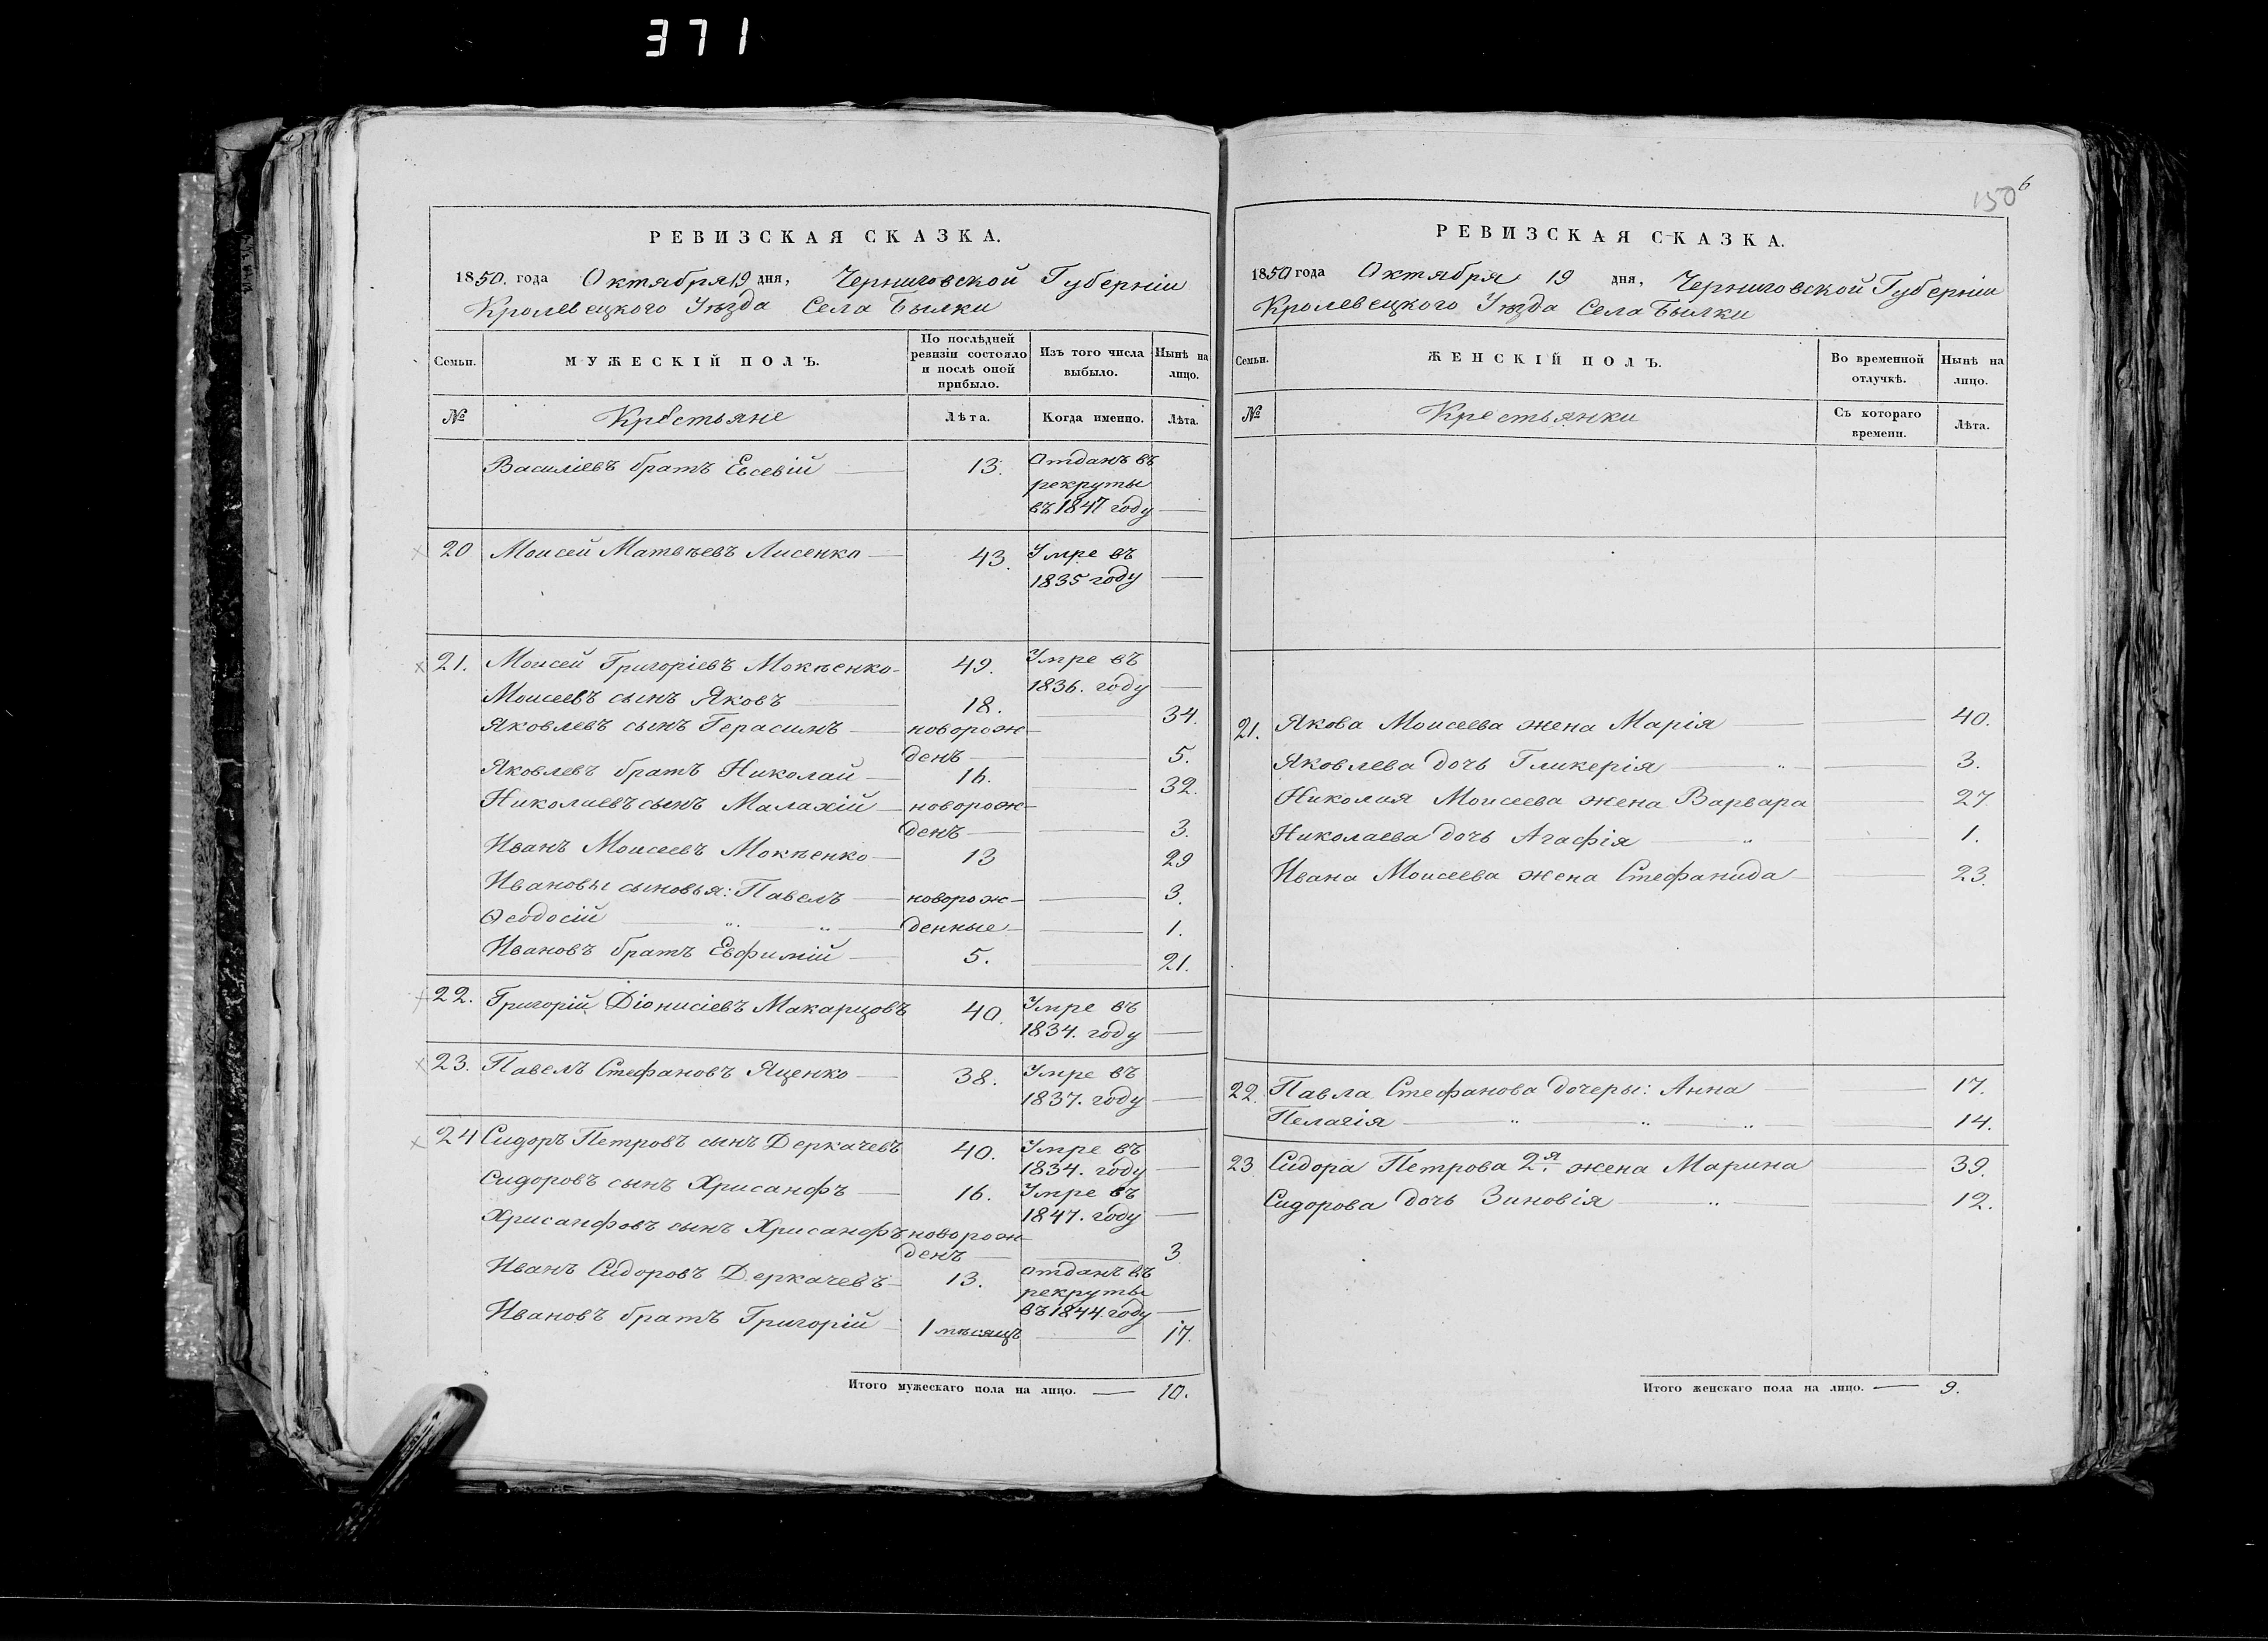 371
РЕВИЗСКАЯ СКАЗКА.
1850. года Октября 19 дня, Черниговской Губерніи
Кролевецкого Уѣзда Села Былки
Семьи. МУЖЕСКІЙ ПОЛЪ. По послѣдней ревизіи состояло и послѣ оной прибыло. Изъ того числа выбыло. Нынѣ на лицо.
№ Крестьяне Лѣта. Когда именно. Лѣта.
Василіевъ братъ Евсевій 13. Отданъ въ
рекруты
въ 1847 году
20 Моисей Матвѣевъ Лисенко 43. Умре въ
1835 году
21. Моисей Григоріевъ Мокѣенко 49. Умре въ
1836. году
Моисеевъ сынъ Яковъ 18. 34.
Яковлевъ сынъ Герасимъ новорож
денъ 5.
Яковлевъ братъ Николай 16. 32.
Николаевъ сынъ Малахій новорож
денъ 3.
Иванъ Моисеевъ Мокѣенко 13 29
Ивановы сыновья: Павелъ новорож 3.
Ѳеодосій денные 1.
Ивановъ братъ Евфимій 5. 21.
22. Григорій Діонисіевъ Макарцовъ 40. Умре въ
1834. году
23. Павелъ Стефановъ Яценко 38. Умре въ
1837. году
24 Сидоръ Петровъ сынъ Деркачевъ 40. Умре въ
1834. году
Сидоровъ сынъ Хрисанфъ 16. Умре въ
1847. году
Хрисанфовъ сынъ Хрисанфъ новорож
денъ 3
Иванъ Сидоровъ Деркачевъ 13. отданъ въ
рекруты
въ 1844. году
Ивановъ братъ Григорій 1 мѣсяцъ 17.
Итого мужескаго пола на лицо. 10.
150
6
РЕВИЗСКАЯ СКАЗКА.
1850 года Октября 19 дня, Черниговской Губерніи
Кролевецкого Уѣзда Села Былки
Семьи. ЖЕНСКІЙ ПОЛЪ. Во временной отлучкѣ. Нынѣ на лицо.
№ Крестьянки Съ котораго времени. Лѣта.
21. Якова Моисеева жена Марія 40.
Яковлева дочь Гликерія 3.
Николая Моисеева жена Варвара 27
Николаева дочь Агафія 1.
Ивана Моисеева жена Стефанида 23.
22. Павла Стефанова дочеры: Анна 17.
Пелагія 14.
23 Сидора Петрова 2я жена Марина 39.
Сидорова дочь Зиновія 12.
Итого женскаго пола на лицо. 9.